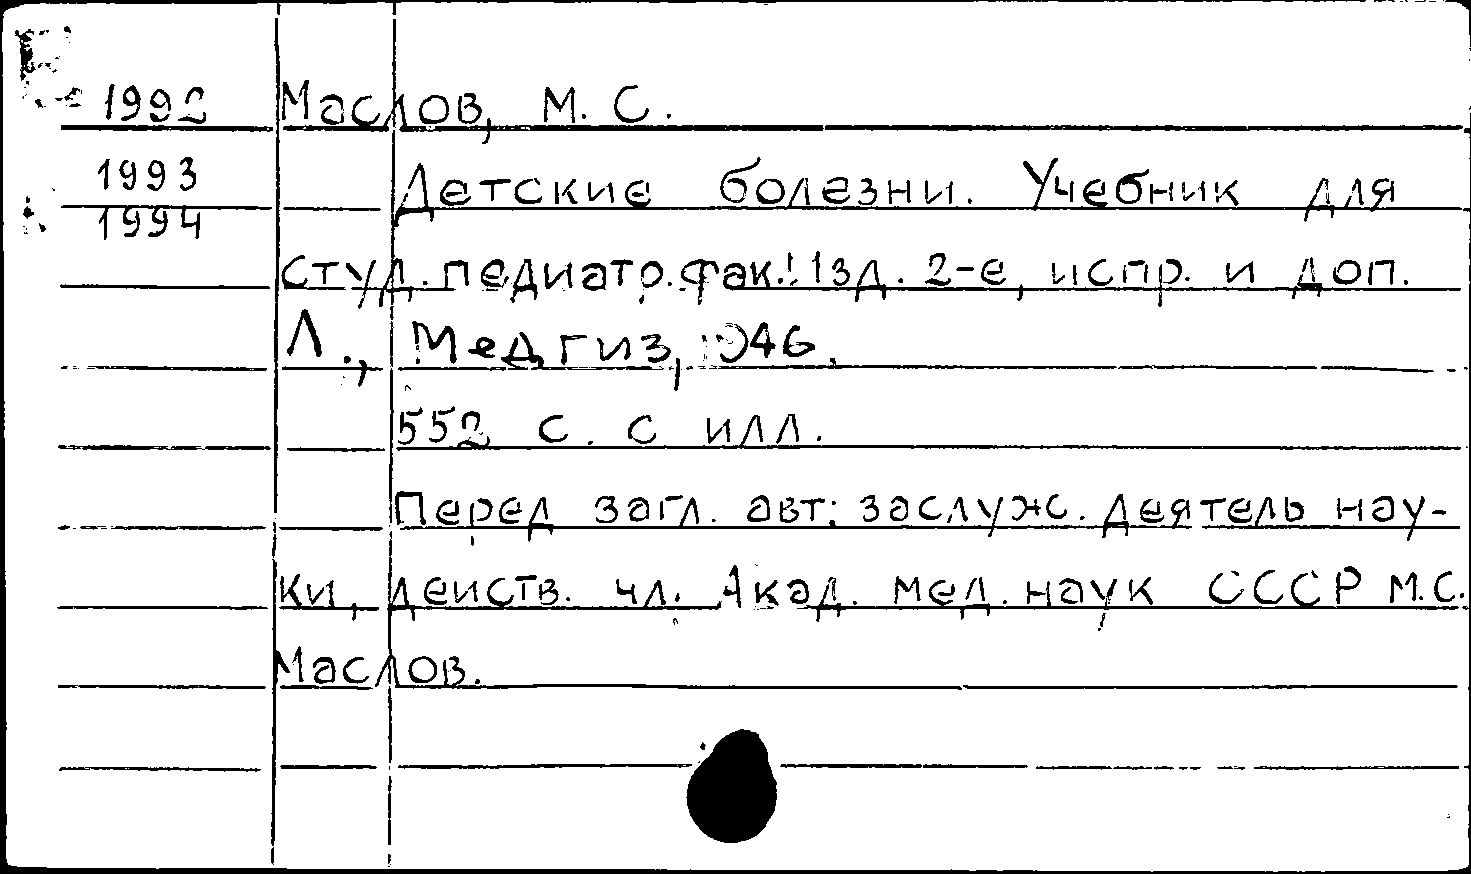 1992 Маслов, М. С.
1993 Детские болезни. Учебник для
1994
студ. педиатр. фак. Изд. 2-е, испр. и доп.
Л., Медгиз, 1946.
552 с. с илл.
Перед загл. авт: заслуж. деятель нау-
ки, действ. чл. Акад. мед. наук СССР М.С.
Маслов.